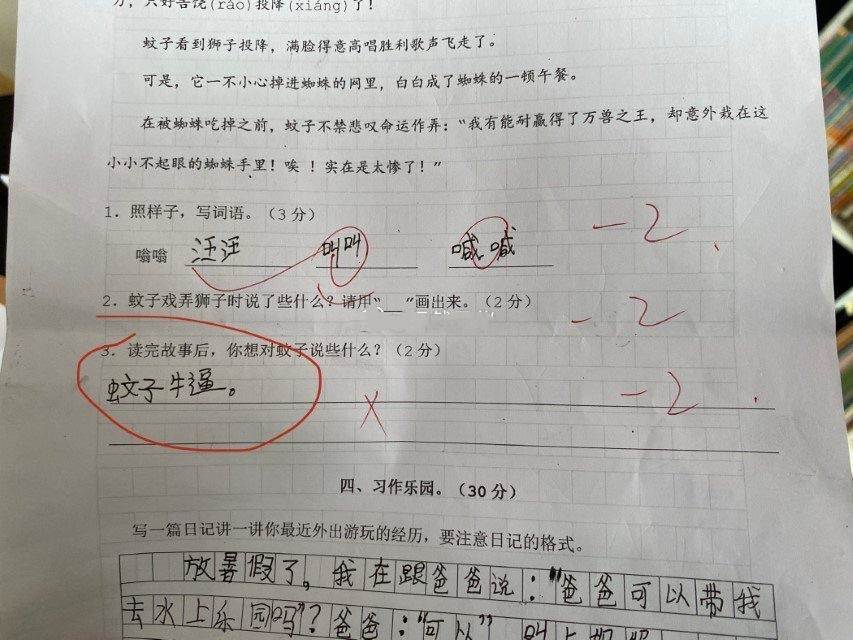 只好苦饶(ráo)投降(xiáng)了！
蚊子看到狮子投降，满脸得意高唱胜利歌声飞走了。
可是，它一不小心掉进蜘蛛的网里，白白成了蜘蛛的一顿午餐。
在被蜘蛛吃掉之前，蚊子不禁悲叹命运作弄：“我有能耐赢得了万兽之王，却意外栽在这
小小不起眼的蜘蛛手里！唉！实在是太惨了！”
1. 照样子，写词语。（3分）
-2
嗡嗡 汪汪 叫叫 喊喊
2. 蚊子戏弄狮子时说了些什么？请用“__”画出来。（2分）
-2
3. 读完故事后，你想对蚊子说些什么？（2分）
蚊子牛逼。
X -2
四、习作乐园。（30分）
写一篇日记讲一讲你最近外出游玩的经历，要注意日记的格式。
放暑假了。我在跟爸爸说：“爸爸可以带我
去水上乐园吗”？爸爸：“可以”